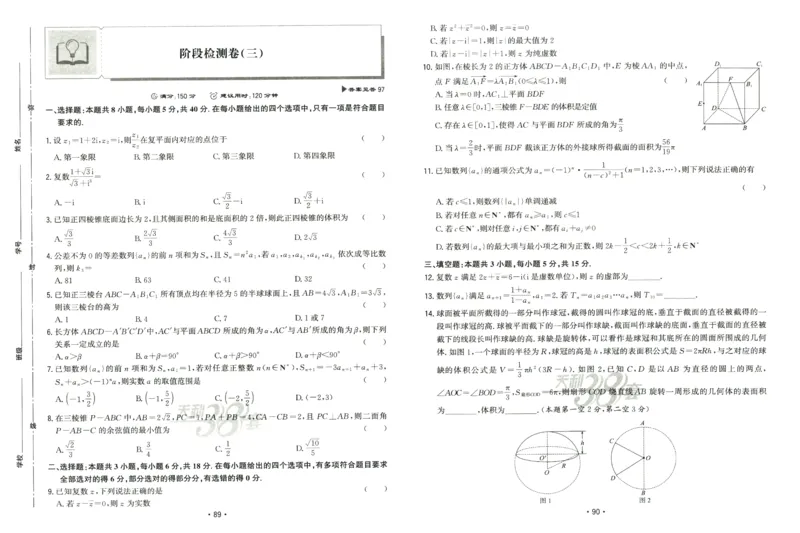 阶段检测卷(三)
满分:150分 建议用时:120分钟
答案见卷97
一、选择题:本题共8小题,每小题5分,共40分.在每小题给出的四个选项中,只有一项是符合题目
要求的.
1.设z₁=1+2i,z₂=i,则z₁/z₂在复平面内对应的点位于 ( )
A.第一象限 B.第二象限 C.第三象限 D.第四象限
2.复数
A.-i B.i C.√3/2-i D.√3/2+i
3.已知正四棱锥底面边长为2,且其侧面积的和是底面积的2倍,则此正四棱锥的体积为 ( )
A.√3/3 B.2√3/3 C.4√3/3 D.2√3
4.公差不为0的等差数列{aₙ}的前n项和为Sₙ,且Sₙ=n²a₁,若 依次成等比数
列,则k₃= ( )
A.81 B.63 C.41 D.32
5.已知正三棱台ABC-A₁B₁C₁所有顶点均在半径为5的半球球面上,且AB=4√3,A₁B₁=3√3,
则该三棱台的高为 ( )
A.1 B.4 C.7 D.1或7
6.长方体ABCD-A'B'C'D'中,AC'与平面ABCD所成的角为α,AC'与AB'所成的角为β,则下列
关系一定成立的是 ( )
A.α>β B.α+β=90° C.α+β>90° D.α+β<90°
7.已知数列{aₙ}的前n项和为Sₙ,a₁=1,若对任意正整数n(n∈N*),Sₙ₊₁=-3aₙ₊₁+aₙ+3,
Sₙ+aₙ>(-1)ⁿa,则实数a的取值范围是 ( )
A.(-1,3/2) B.(-1,5/2) C.(-2,5/2) D.(-2,3)
8.在三棱锥P-ABC中,AB=2√2,PC=1,PA+PB=4,CA-CB=2,且PC⊥AB,则二面角
P-AB-C的余弦值的最小值为 ( )
A.√2/3 B.3/4 C.1/2 D.√10/5
二、选择题:本题共3小题,每小题6分,共18分.在每小题给出的四个选项中,有多项符合题目要求.
全部选对的得6分,部分选对的得部分分,有选错的得0分.
9.已知复数z,下列说法正确的是 ( )
A.若z-z̄=0,则z为实数
· 89 ·
B.若z²+z̄²=0,则z=z̄=0
C.若|z-i|=1,则|z|的最大值为2
D.若|z-i|=|z|+1,则z为纯虚数
10.如图,在棱长为2的正方体ABCD-A₁B₁C₁D₁中,E为棱AA₁的中点,
点F满足A₁F=λA₁B₁(0≤λ≤1),则 ( )
A.当λ=0时,AC₁⊥平面BDF
B.任意λ∈[0,1],三棱锥F-BDE的体积是定值
C.存在λ∈[0,1],使得AC与平面BDF所成的角为π/3
D.当λ=2/3时,平面BDF截该正方体的外接球所得截面的面积为56/19π
11.已知数列{aₙ}的通项公式为aₙ=(-1)ⁿ·1/((n-c)²+1)(n=1,2,3,…),则下列说法正确的有
( )
A.若c≤1,则数列{|aₙ|}单调递减
B.若对任意n∈N*,都有aₙ≥a₁,则c≤1
C.若c∈N*,则对任意i,j∈N*,都有aᵢ+aⱼ≠0
D.若数列{aₙ}的最大项与最小项之和为正数,则2k-1/2<c<2k+1/2,k∈N*
三、填空题:本题共3小题,每小题5分,共15分.
12.复数z满足2z+z̄=6-i(i是虚数单位),则z的虚部为________.
13.数列{aₙ}满足aₙ₊₁=(1+aₙ)/(1-aₙ),a₁=2.若Tₙ=a₁a₂a₃…aₙ,则T₁₀=________.
14.球面被平面所截得的一部分叫作球冠,截得的圆叫作球冠的底,垂直于截面的直径被截得的一
段叫作球冠的高.球被平面截下的一部分叫作球缺,截面叫作球缺的底面,垂直于截面的直径被
截下的线段长叫作球缺的高.球缺是旋转体,可以看作是球冠和其底所在的圆面所围成的几何
体.如图1,一个球面的半径为R,球冠的高是h,球冠的表面积公式是S=2πRh,与之对应的球
缺的体积公式是V=1/3πh²(3R-h).如图2,已知C,D是以AB为直径的圆上的两点,
∠AOC=∠BOD=π/3,S扇形COD=6π,则扇形COD绕直线AB旋转一周形成的几何体的表面积
为________,体积为________.(本题第一空2分,第二空3分)
图1 图2
· 90 ·
姓名
学号
班级
学校
密
封
线